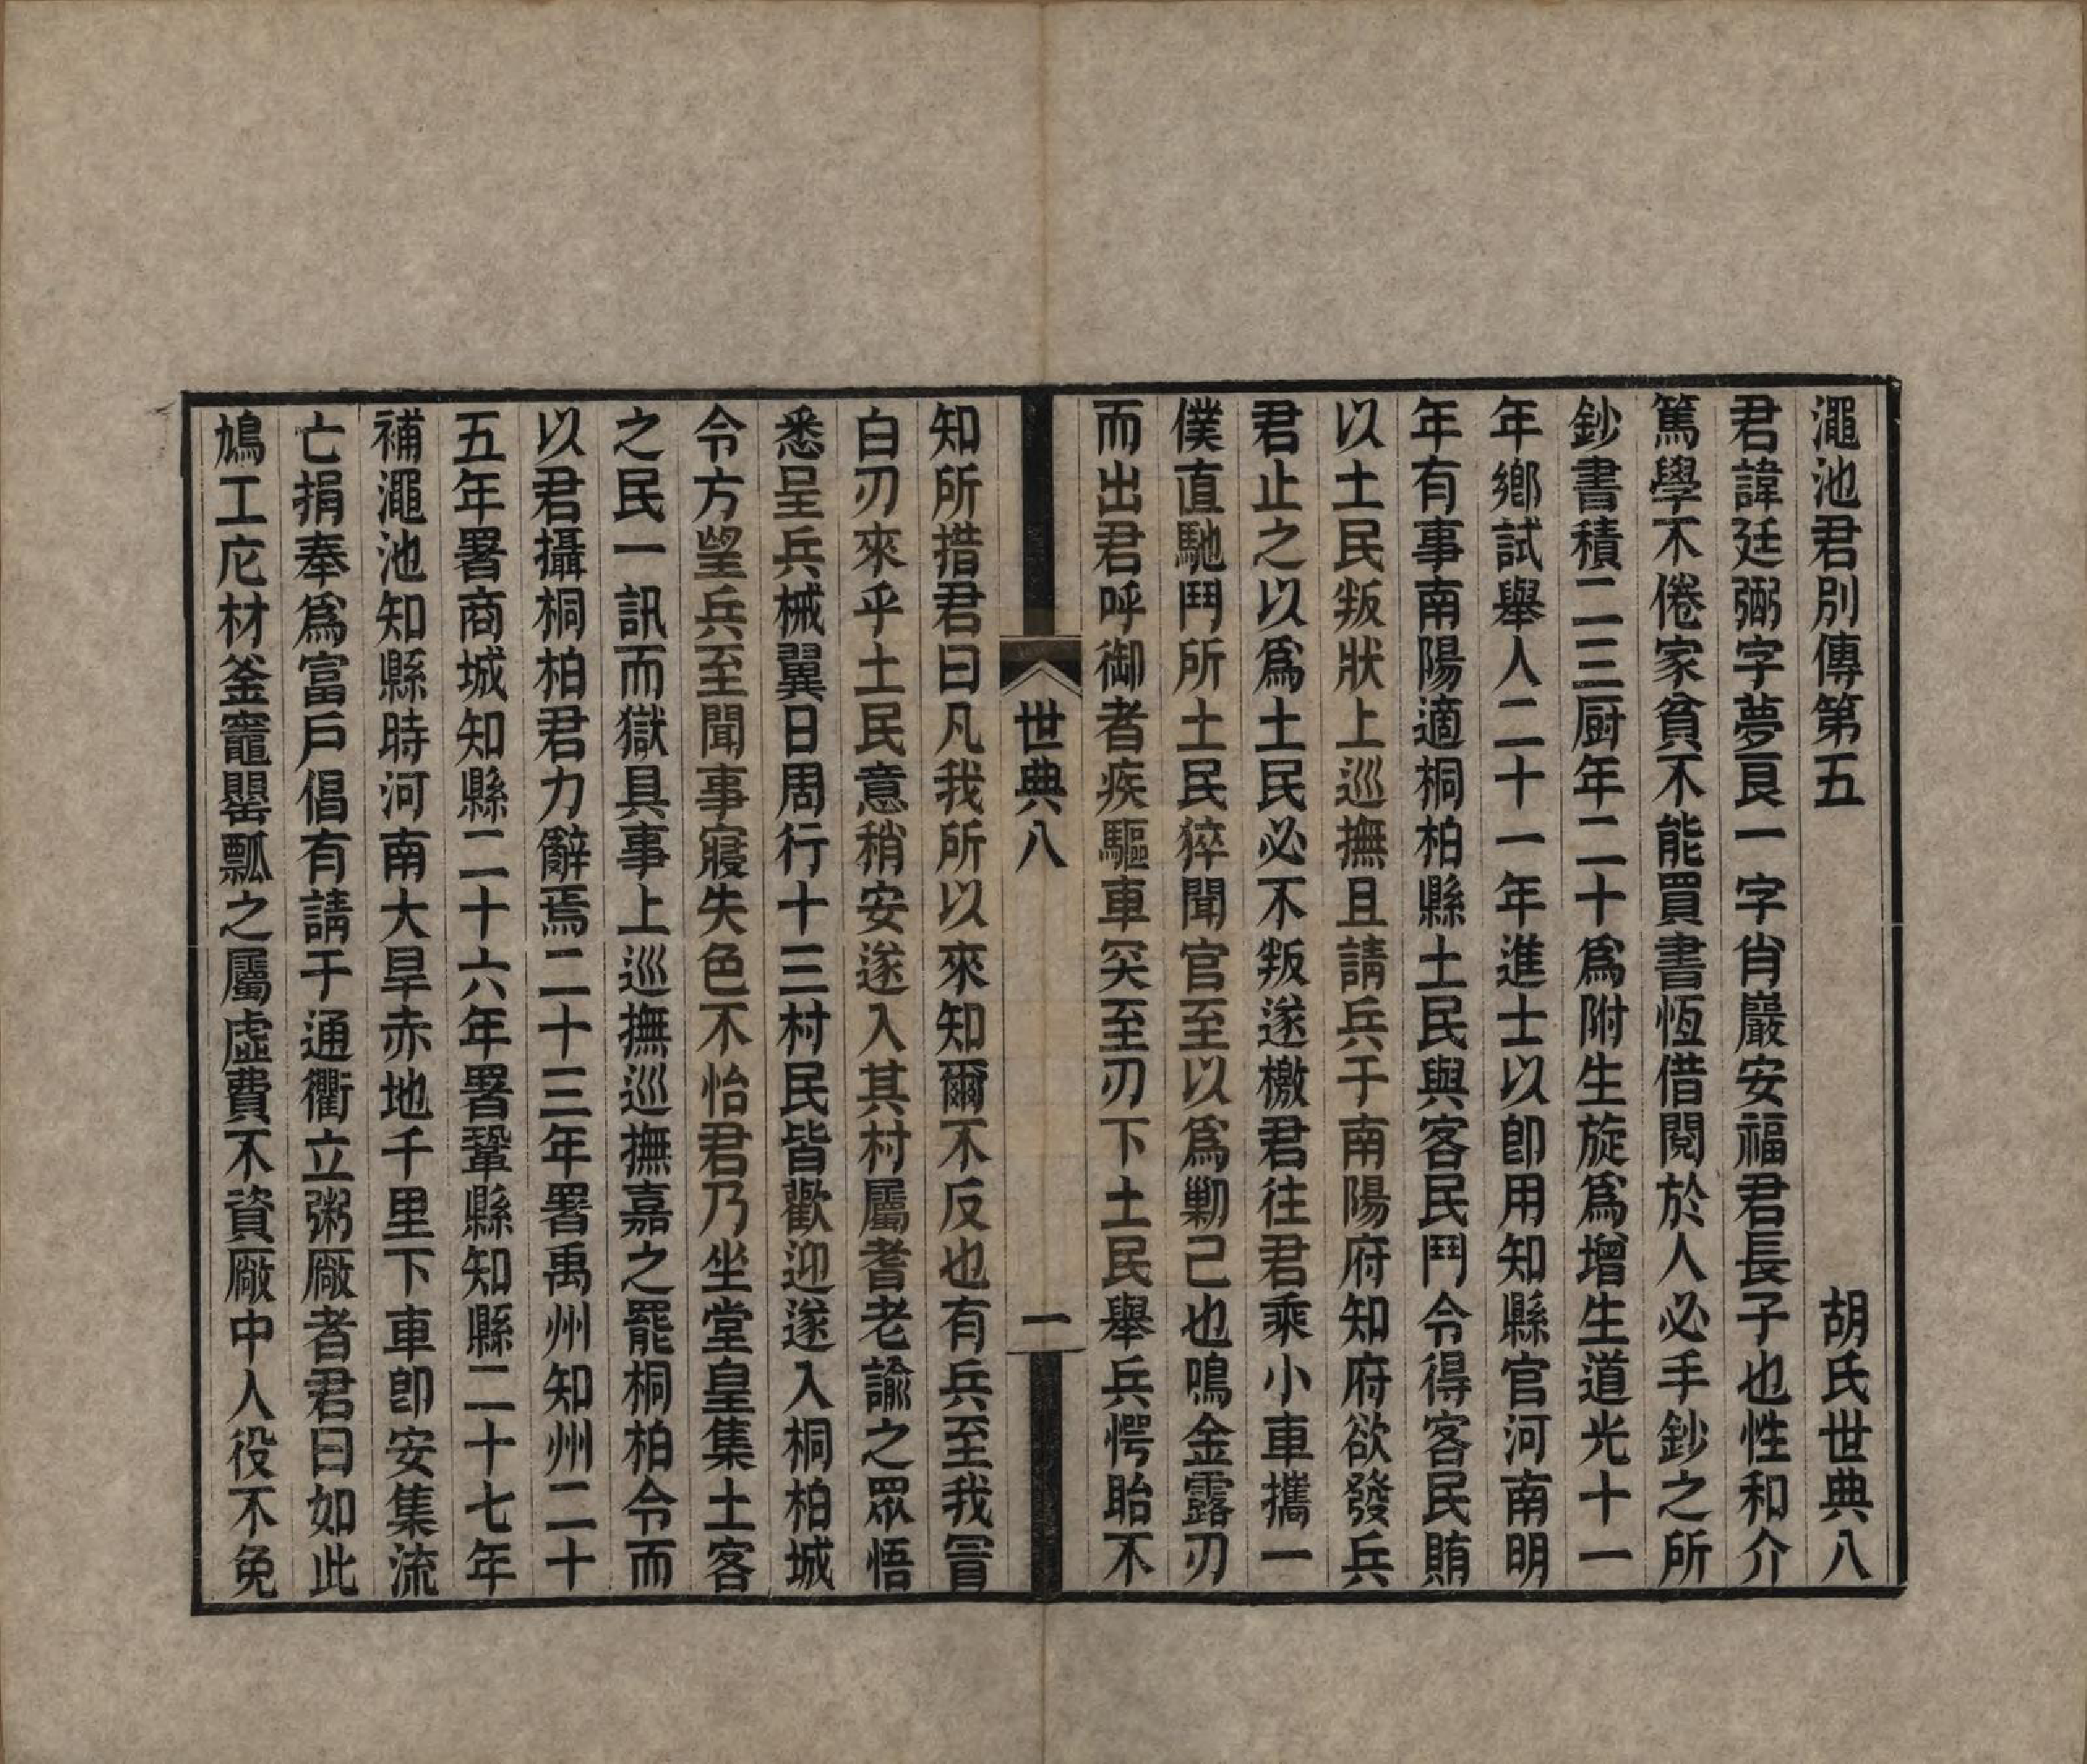 澠池君別傳第五　胡氏世典八
君諱廷弼字夢良一字肖巖安福君長子也性和介
篤學不倦家貧不能買書恆借閱於人必手鈔之所
鈔書積二三厨年二十爲附生旋爲增生道光十一
年鄉試舉人二十一年進士以卽用知縣官河南明
年有事南陽適桐柏縣土民與客民鬥令得客民賄
以土民叛狀上巡撫且請兵于南陽府知府欲發兵
君止之以爲土民必不叛遂檄君往君乘小車攜一
僕直馳鬥所土民猝聞官至以爲勦己也鳴金露刃
而出君呼御者疾驅車突至刃下土民舉兵愕眙不
世典八　一
知所措君曰凡我所以來知爾不反也有兵至我冒
白刃來乎土民意稍安遂入其村屬耆老諭之眾悟
悉呈兵械翼日周行十三村民皆歡迎遂入桐柏城
令方望兵至聞事寢失色不怡君乃坐堂皇集土客
之民一訊而獄具事上巡撫巡撫嘉之罷桐柏令而
以君攝桐柏君力辭焉二十三年署禹州知州二十
五年署商城知縣二十六年署鞏縣知縣二十七年
補澠池知縣時河南大旱赤地千里下車卽安集流
亡捐奉爲富戶倡有請于通衢立粥厰者君曰如此
鳩工庀材釜竈罌瓢之屬虛費不資厰中人役不免